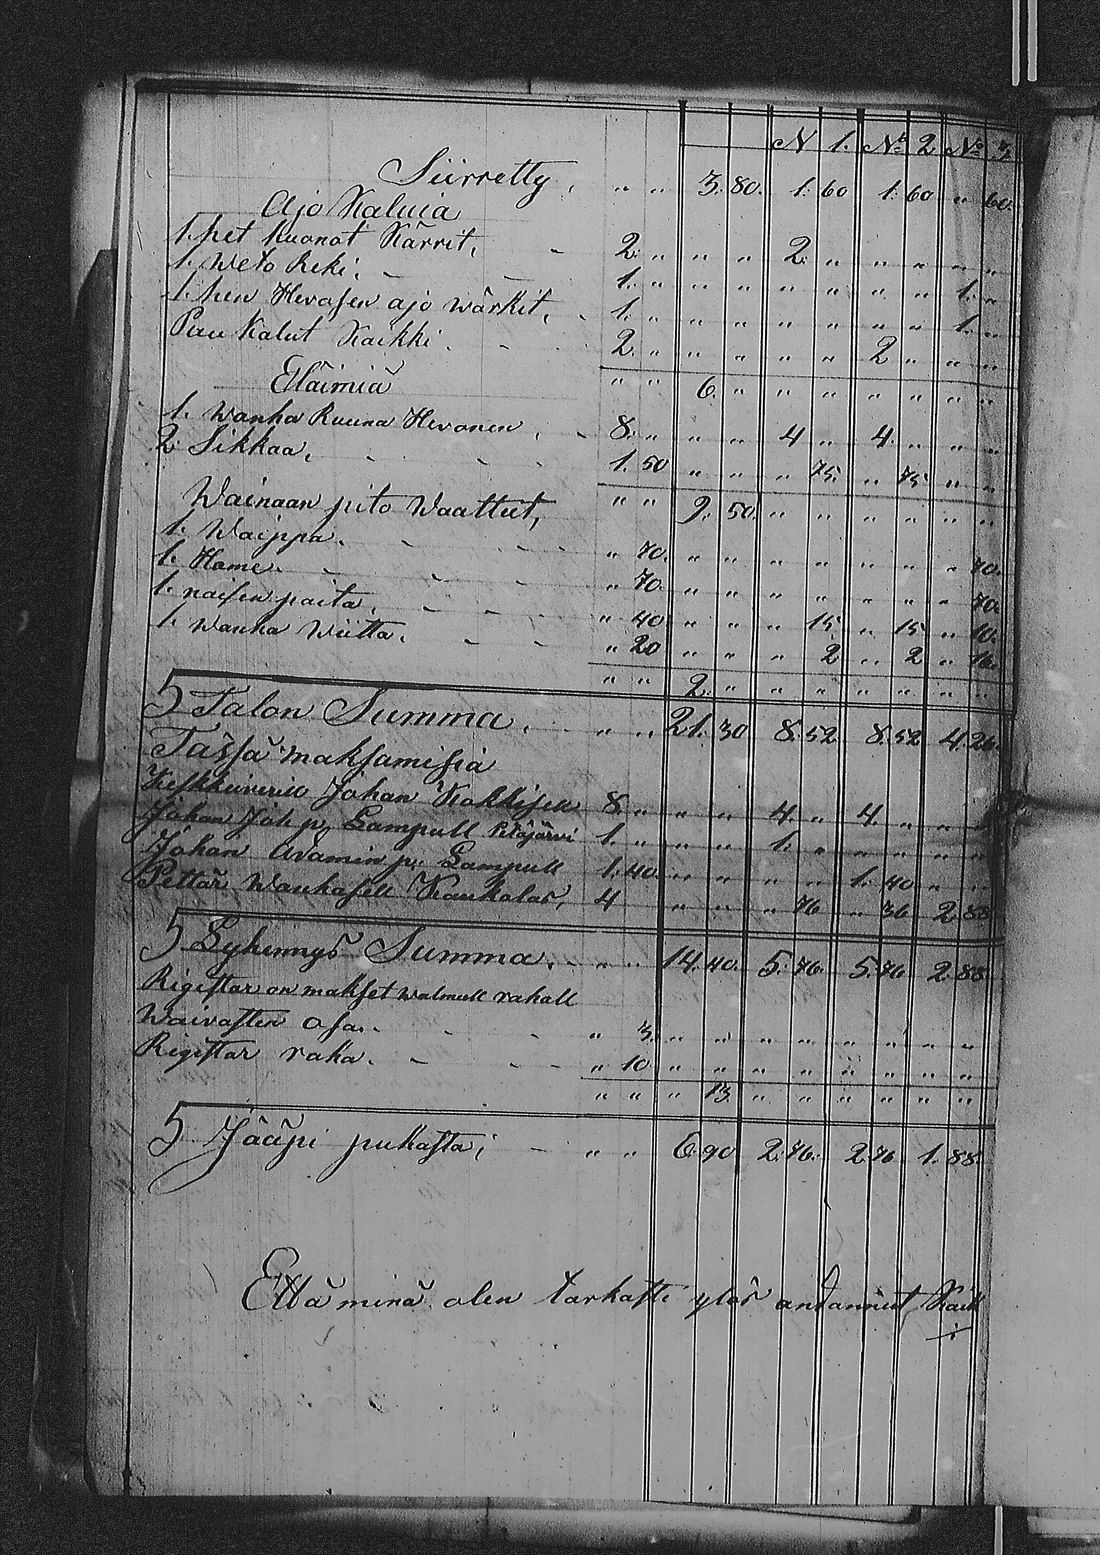 N 1. No 2 No 3.
Siirretty, " " 3. 80. 1. 60 1. 60 " 60.
Ajo Kaluia
1. pet kuonot Kärrit, - 2. " " " 2. " " " " "
1. Weto Reki. - - 1. " " " " " " " 1. "
1. hen Hevosen ajo wärkit, - 1. " " " " " " " 1. "
Puu kalut Kaikki - - 2. " " " " " 2 " " "
Eläimiä " " 6. " " " " " " "
1. Wanha Ruuna Hevonen, - 8. " " " 4 " 4. " " "
2 Sikkaa, - - - 1. 50 " " " 75. " 75 " "
Wainaan pito Waattut, " " 9. 50. " " " " " "
1. Waippa. - - - " 70. " " " " " " " 70.
1. Hame. - - - " 70. " " " " " " " 70.
1. naisen paita, - - - " 40 " " " 15 " 15 " 10.
1. Wanha Wiitta. - - - " 20 " " " 2 " 2 " 16.
" " 2. " " " " " " "
S Talon Summa. " " 21. 30 8. 52 8. 52 4. 26.
Tässä maksamisia
Johan Kokkisell 8 " " " 4 " 4 " " "
Johan Joh p. Lampull Pitäjärvi 1. " " " 1. " " " " "
Johan Adamin p. Lampull 1. 40 " " " " 1. 40 " "
Pettär Waukasell Kaukolas, 4 " " " 76 " 36 2. 88
S Lyhennys Summa. - " " 14. 40. 5. 76. 5. 76 2. 88.
Rigistar on makset walmull rahall
Waivasten Osa. - - " 3. " " " " " " " "
Rigistar raha. - - - " 10 " " " " " " " "
" " " 13 " " " " " "
S Jääpi puhasta; - " " 6. 90 2. 76. 2. 76 1. 88.
Että minä olen tarkasti ylös andannut Kaik